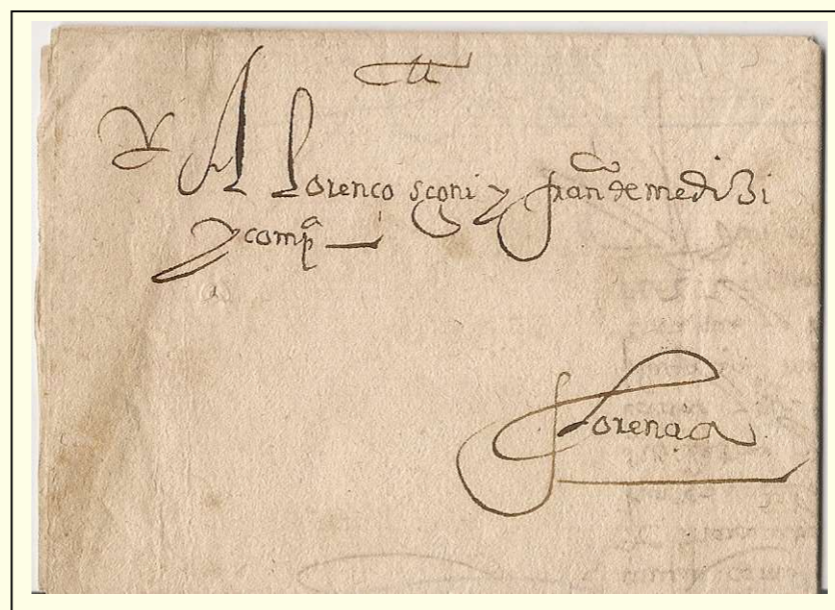 A lorenço sconi y fran^co de medizi
y comp^a
florença